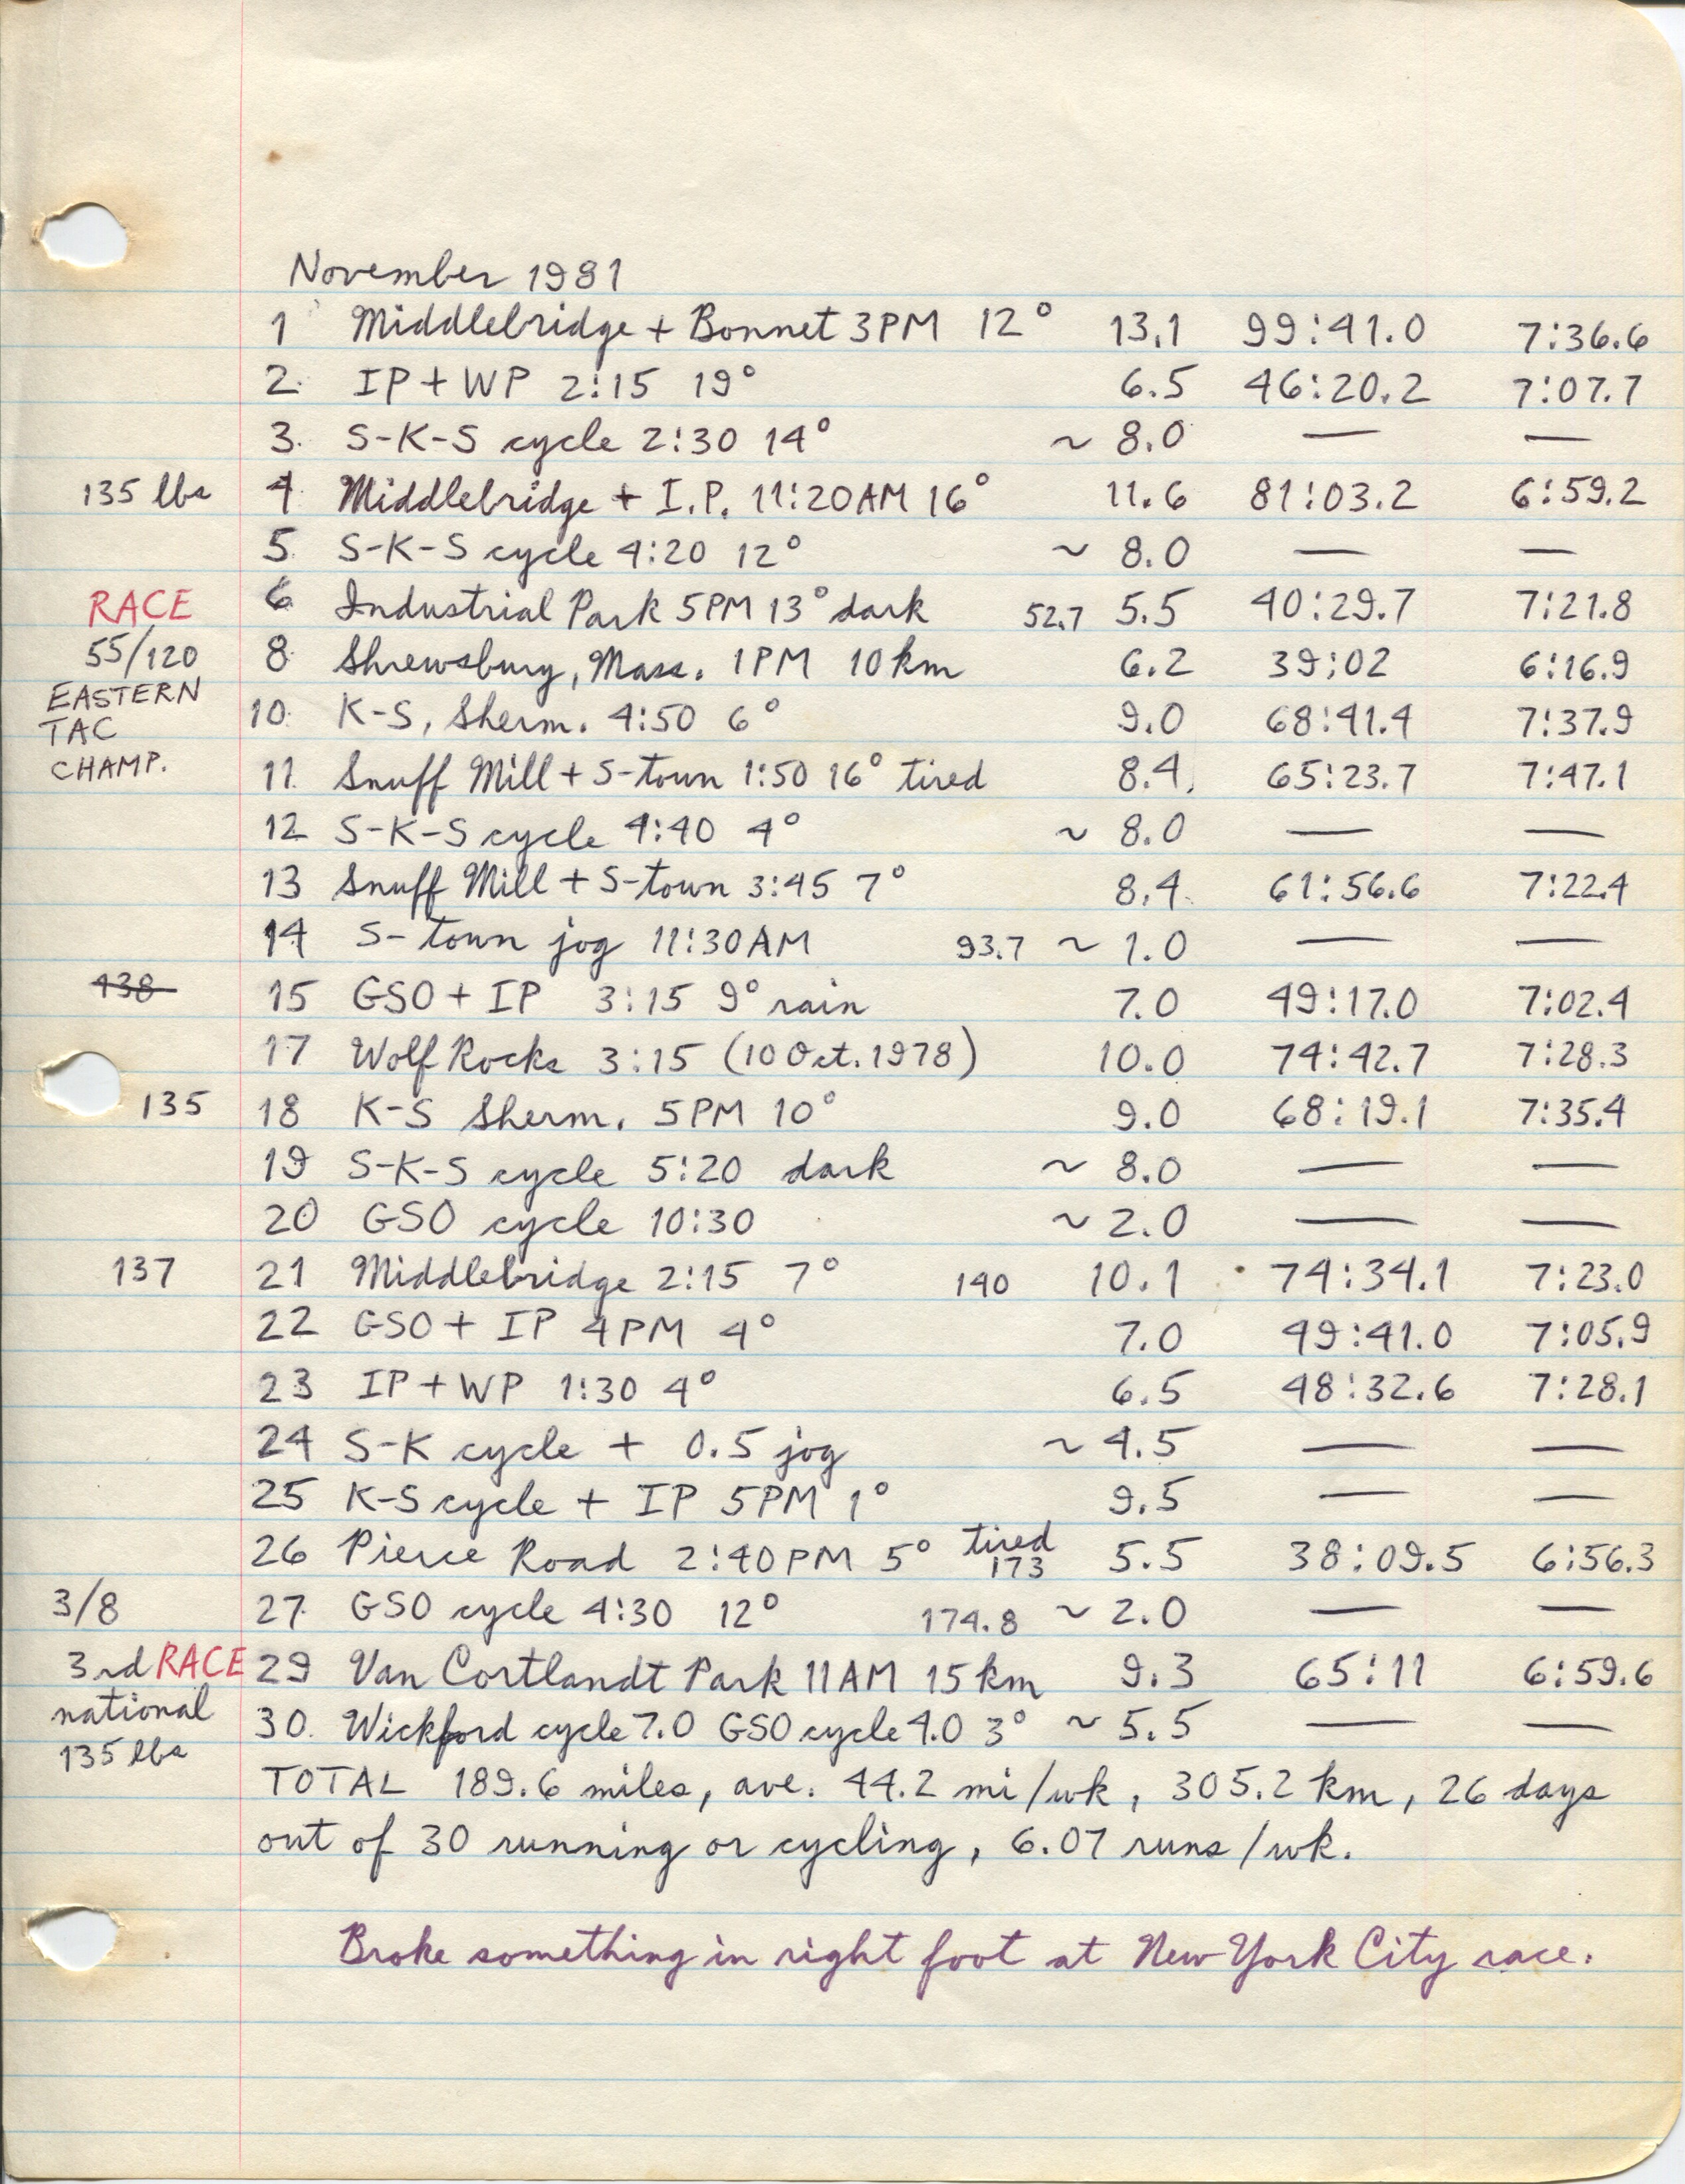 November 1981
1 Middlebridge + Bonnet 3PM 12° 13.1 99:41.0 7:36.6
2. IP + WP 2:15 19° 6.5 46:20.2 7:07.7
3. S-K-S cycle 2:30 14° ~ 8.0 — —
135 lbs 4 Middlebridge + I.P. 11:20AM 16° 11.6 81:03.2 6:59.2
5 S-K-S cycle 4:20 12° ~ 8.0 — —
RACE 6 Industrial Park 5PM 13° dark 52.7 5.5 40:29.7 7:21.8
55/120 8 Shrewsbury, Mass. 1PM 10 km 6.2 39:02 6:16.9
EASTERN
TAC 10 K-S, Sherm. 4:50 6° 9.0 68:41.4 7:37.9
CHAMP. 11 Snuff Mill + S-town 1:50 16° tired 8.4 65:23.7 7:47.1
12 S-K-S cycle 4:40 4° ~ 8.0 — —
13 Snuff Mill + S-town 3:45 7° 8.4 61:56.6 7:22.4
14 S-town jog 11:30AM 93.7 ~ 1.0 — —
138 15 GSO + IP 3:15 9° rain 7.0 49:17.0 7:02.4
17 Wolf Rocks 3:15 (10 Oct. 1978) 10.0 74:42.7 7:28.3
135 18 K-S Sherm. 5PM 10° 9.0 68:19.1 7:35.4
19 S-K-S cycle 5:20 dark ~ 8.0 — —
20 GSO cycle 10:30 ~ 2.0 — —
137 21 Middlebridge 2:15 7° 140 10.1 74:34.1 7:23.0
22 GSO + IP 4PM 4° 7.0 49:41.0 7:05.9
23 IP + WP 1:30 4° 6.5 48:32.6 7:28.1
24 S-K cycle + 0.5 jog ~ 4.5 — —
25 K-S cycle + IP 5PM 1° 9.5 — —
26 Pierce Road 2:40PM 5° tired 173 5.5 38:09.5 6:56.3
3/8 27 GSO cycle 4:30 12° 174.8 ~ 2.0 — —
3rd RACE 29 Van Cortlandt Park 11AM 15 km 9.3 65:11 6:59.6
national
135 lbs 30. Wickford cycle 7.0 GSO cycle 4.0 3° ~ 5.5 — —
TOTAL 189.6 miles, ave. 44.2 mi/wk, 305.2 km, 26 days
out of 30 running or cycling, 6.07 runs/wk.
Broke something in right foot at New York City race.